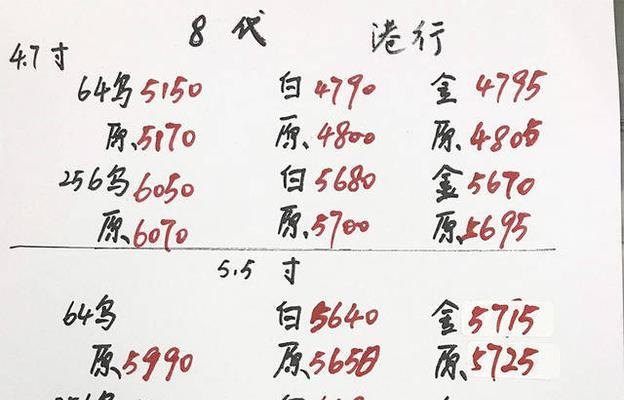 8代 港行
4.7寸
64乌5150 白4790 金4795
原.5170 原.4800 原.4805
256乌6050 白5680 金5670
原.6070 原.5700 原.5695
5.5寸
64乌 白5640 金5715
原5990 原5650 原.5725